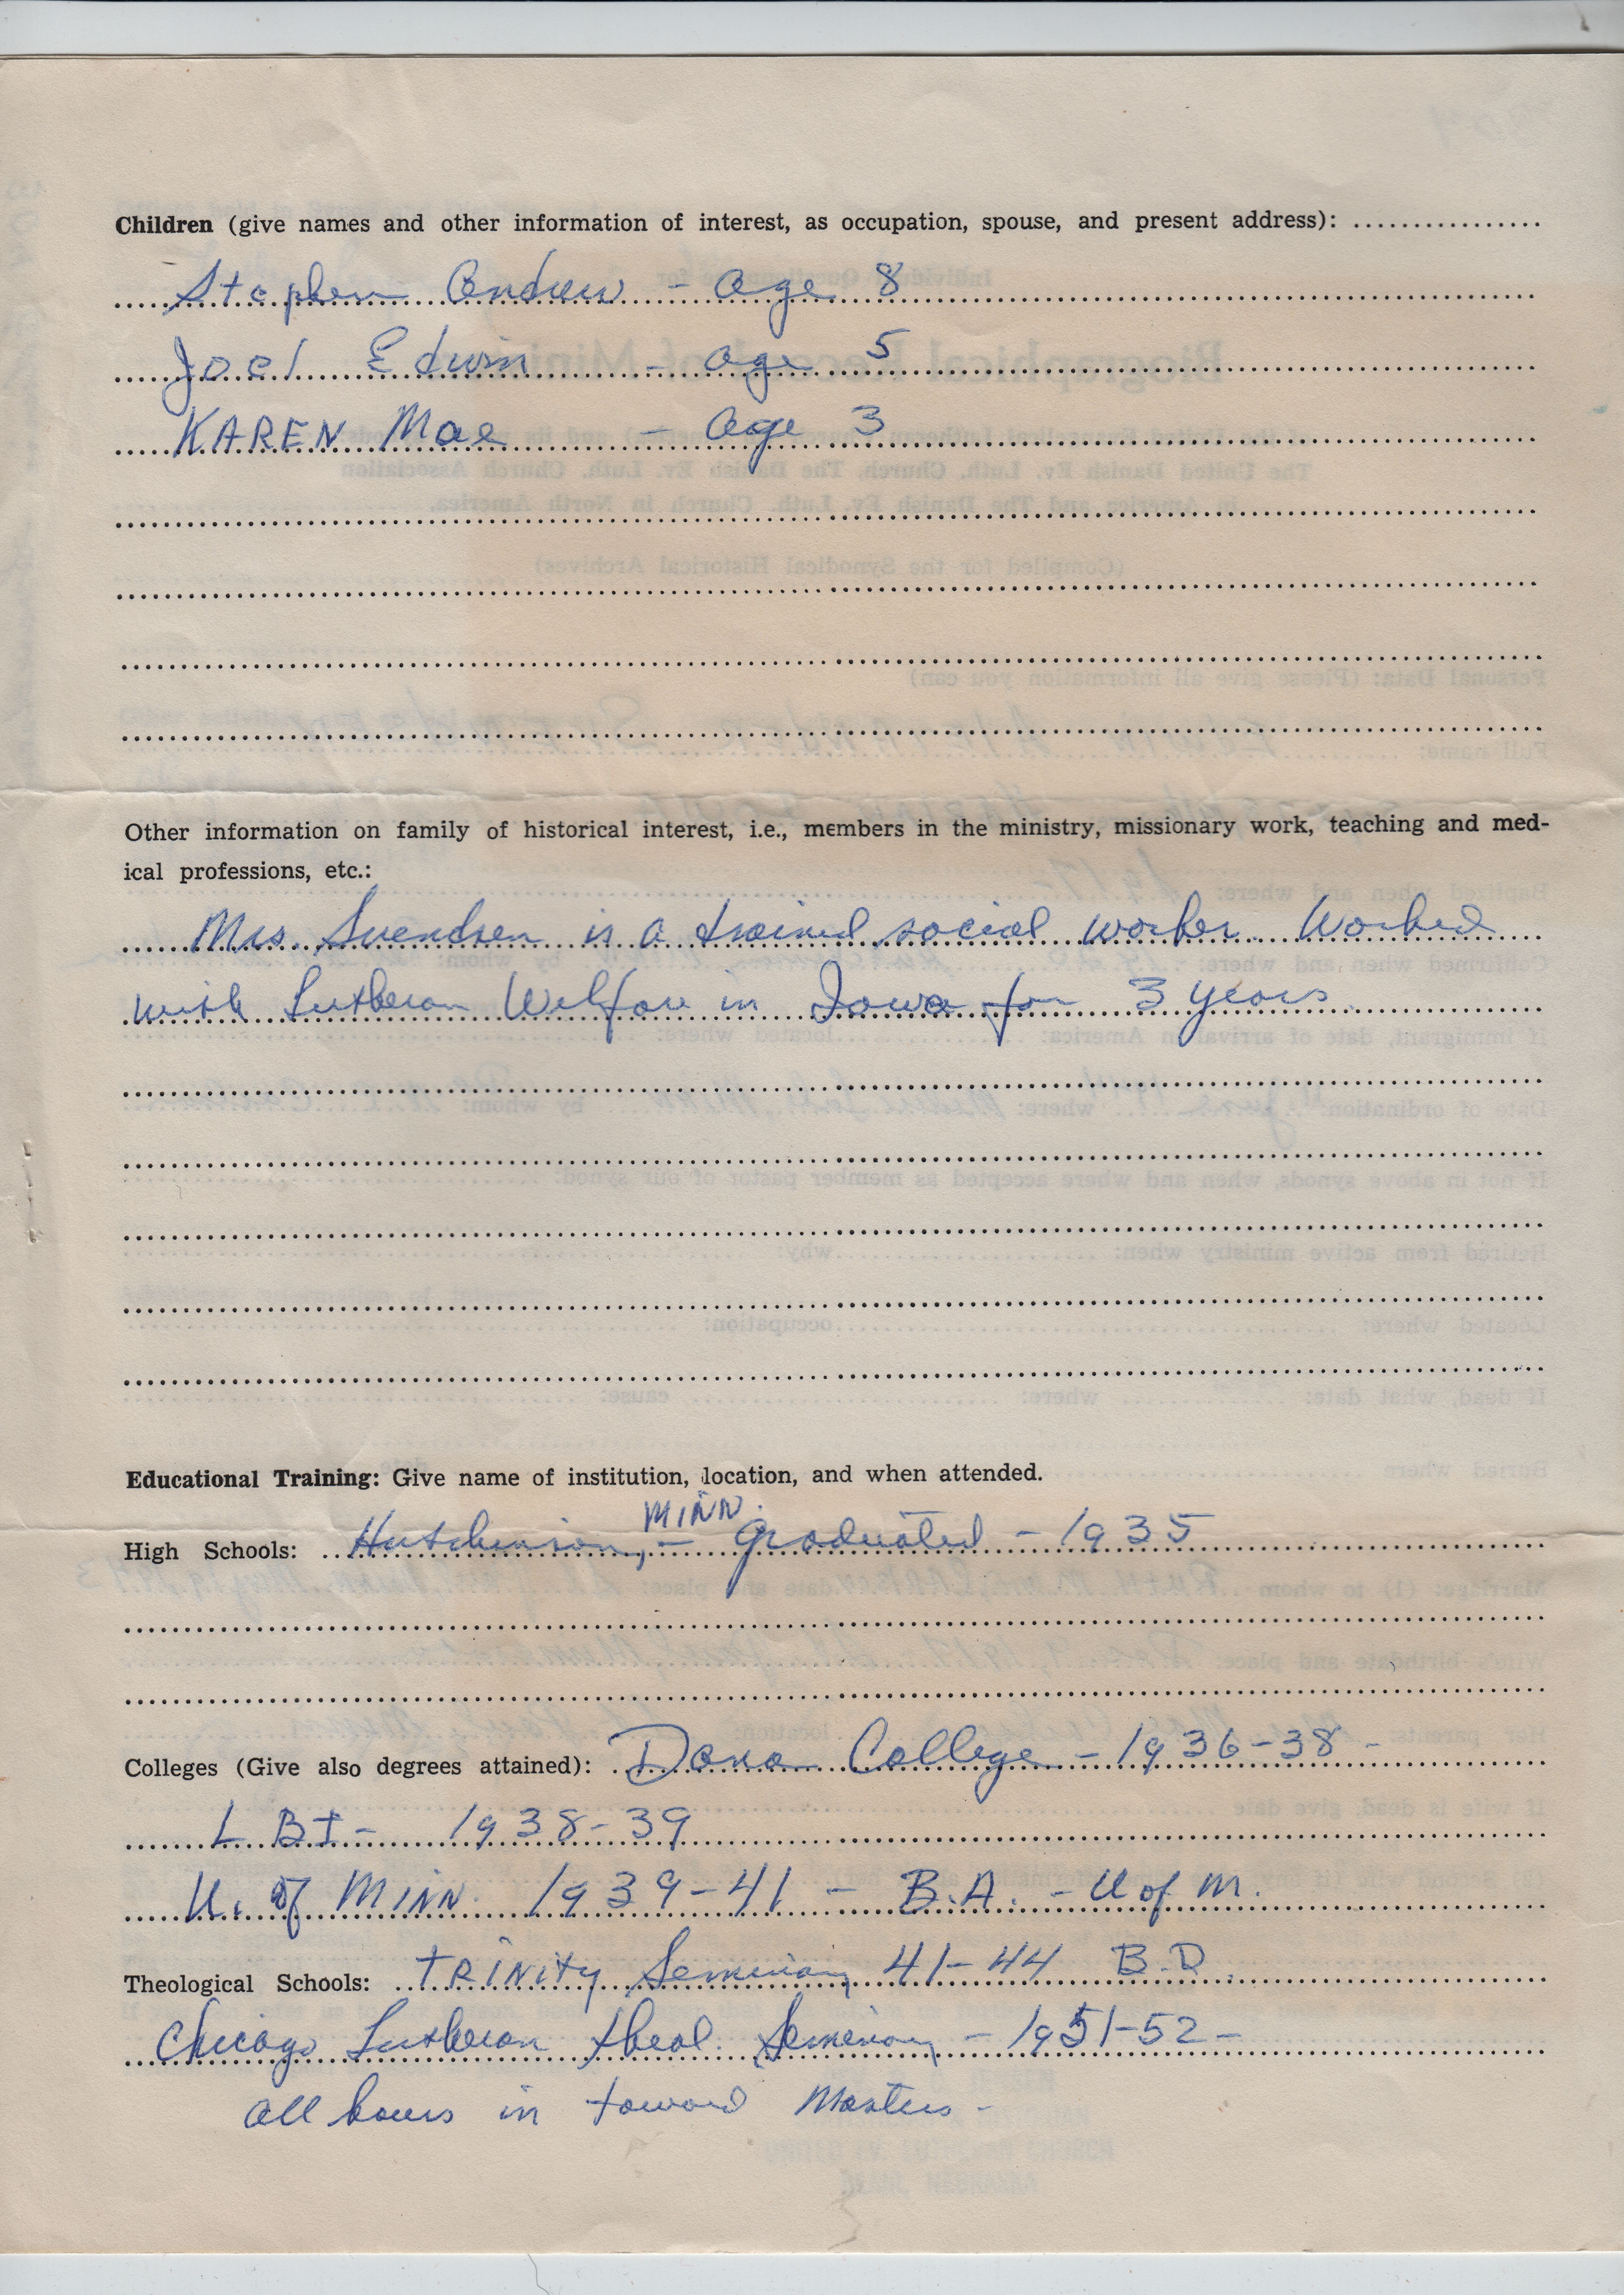 Children (give names and other information of interest, as occupation, spouse, and present address):
Stephen Andrew - age 8
Joel Edwin - age 5
KAREN Mae - age 3
Other information on family of historical interest, i.e., members in the ministry, missionary work, teaching and med-
ical professions, etc.:
Mrs. Svendsen is a trained social worker. Worked
with Lutheran Welfare in Iowa for 3 years.
Educational Training: Give name of institution, location, and when attended.
High Schools: Hutchinson, MINN. - graduated - 1935
Colleges (Give also degrees attained): Dana College - 1936-38 -
L B I - 1938-39
U. of MINN. 1939-41 - B.A. - U of M.
Theological Schools: TRINITY Seminary 41-44 B.D.
Chicago Lutheran Theol. Seminary - 1951-52 -
all hours in toward Masters -